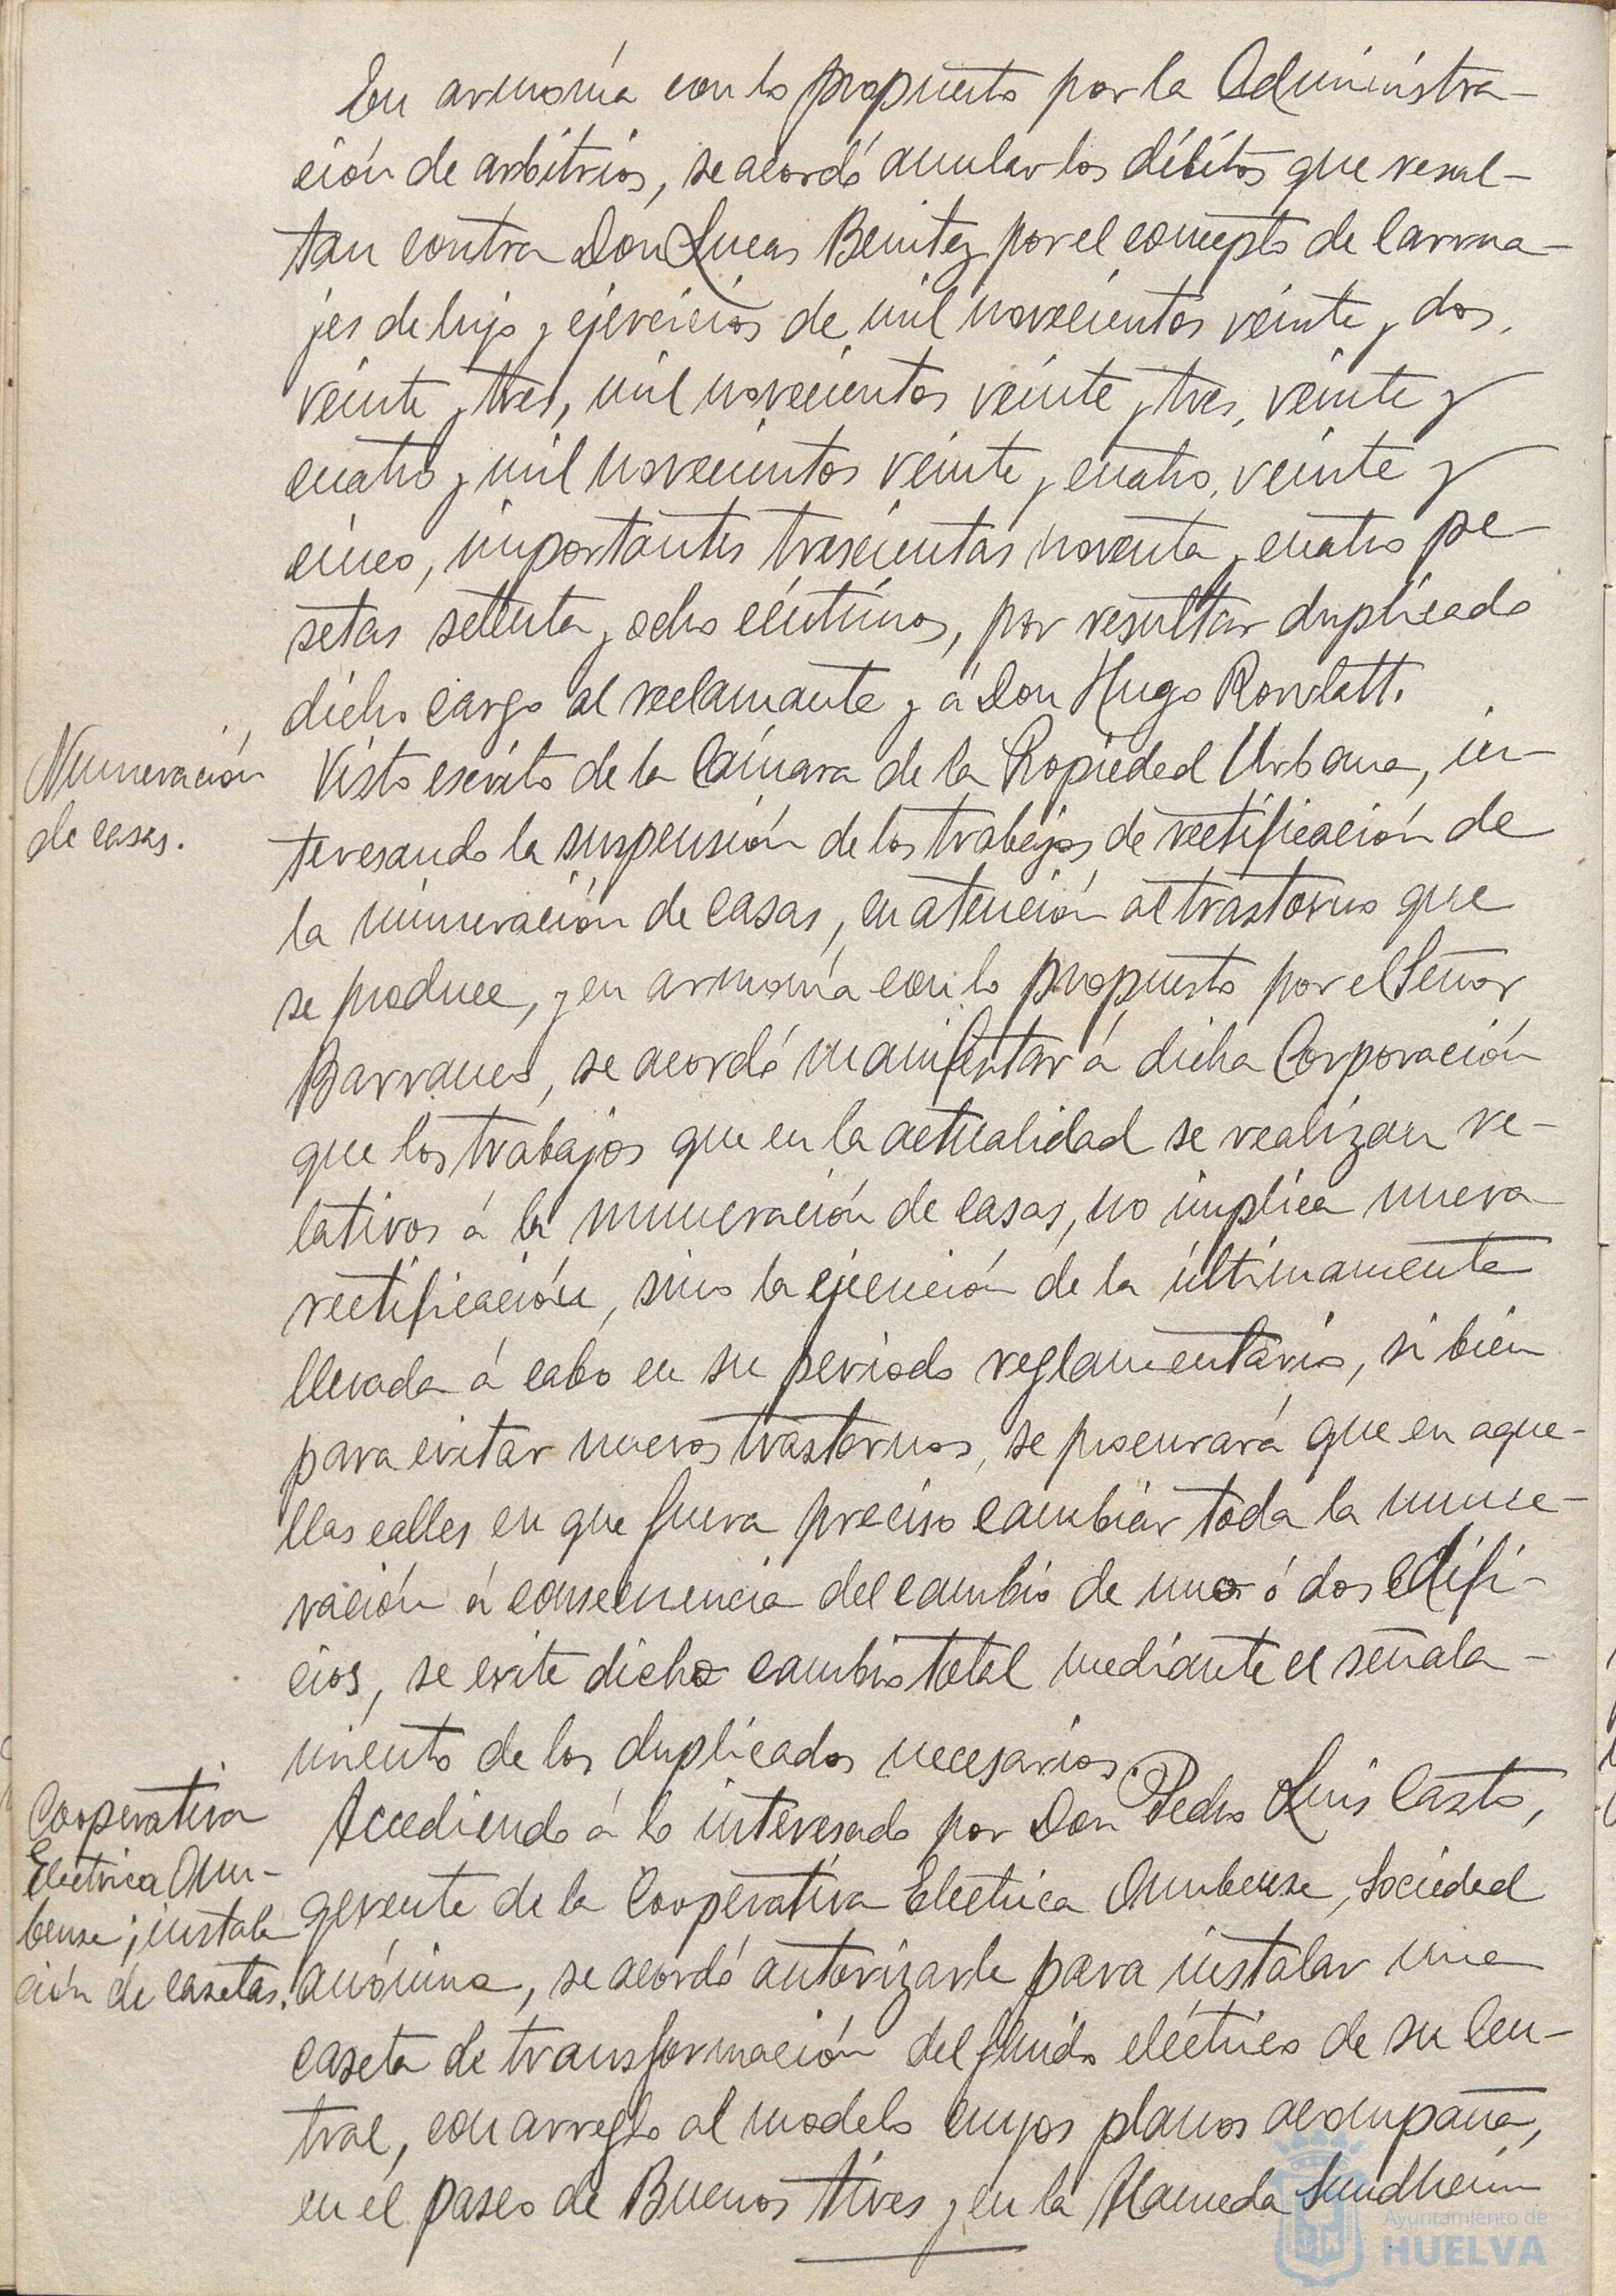 En armonía con lo propuesto por la Administra-
ción de arbitrios, se acordó anular los débitos que resul-
tan contra Don Lucas Benitez por el concepto de carrua-
jes de lujo y ejercicios de mil novecientos veinte y dos,
veinte y tres, mil novecientos veinte y tres, veinte y
cuatro y mil novecientos veinte y cuatro, veinte y
cinco, importantes trescientas noventa y cuatro pe-
setas setenta y ocho céntimos, por resultar duplicado
dicho cargo al reclamante y á Don Hugo Rowlatt.
Numeración
de casas.
Visto escrito de la Cámara de la Propiedad Urbana, in-
teresando la suspensión de los trabajos de rectificación de
la numeración de casas, en atención al trastorno que
se produce, y en armonía con lo propuesto por el Señor
Barranco, se acordó manifestar á dicha Corporación
que los trabajos que en la actualidad se realizan re-
lativos á la numeración de casas, no implica nueva
rectificación, sino la ejecución de la últimamente
llevada á cabo en su periodo reglamentario, si bien
para evitar nuevos trastornos, se procurará que en aque-
llas calles en que fuera preciso cambiar toda la nume-
ración á consecuencia del cambio de uno ó dos edifi-
cios, se evite dicho cambio total mediante el señala-
miento de los duplicados necesarios.
Cooperativa
Electrica Onu-
bense; instala
ción de casetas.
Accediendo á lo interesado por Don Pedro Luis Casto,
gerente de la Cooperativa Electrica Onubense, Sociedad
anónima, se acordó autorizarle para instalar una
caseta de transformación del fluido eléctrico de su Cen-
tral, con arreglo al modelo cuyos planos acompaña,
en el paseo de Buenos Aires y en la Alameda Sundheim
Ayuntamiento de
HUELVA